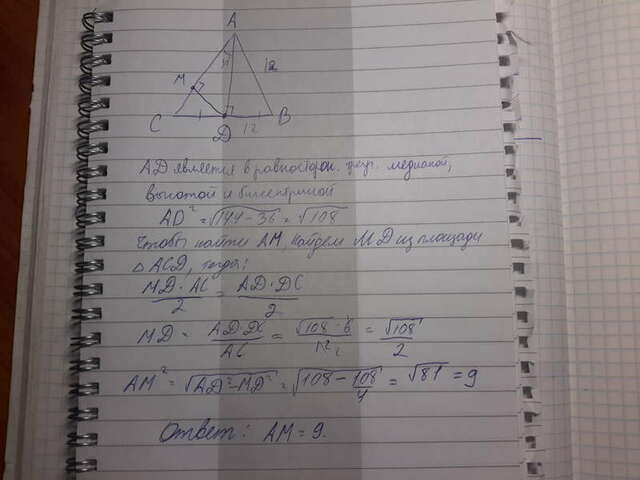 A
M
12
C
D
12
B
AD является в равностор. треуг. медианой,
высотой и биссектрисой
AD² = √144-36 = √108
Чтобы найти AM, найдем MD из площади
△ ACD, тогда:
MD·AC/2 = AD·DC/2
MD = AD·DC/AC = √108·6/12 = √108/2
AM² = √AD²-MD² = √108 - 108/4 = √81 = 9
Ответ: AM = 9.